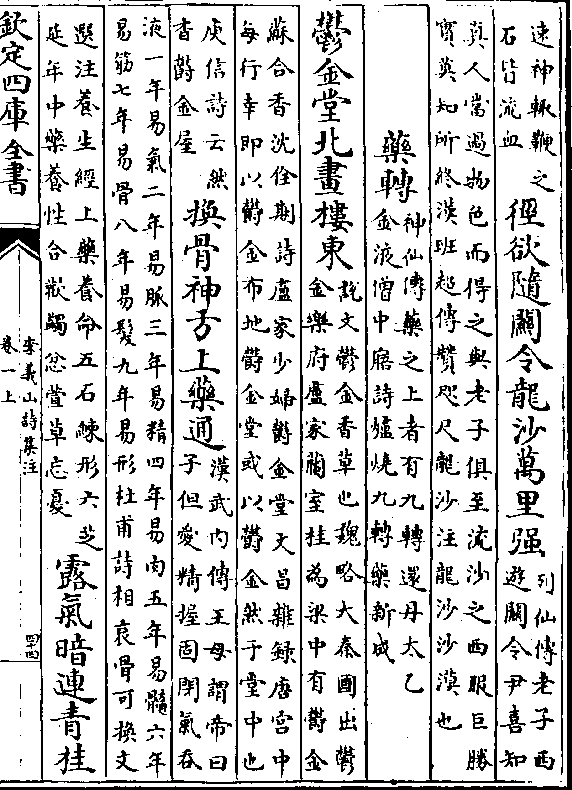 速神輙鞭之
石皆流血
徑欲隨關令龍沙萬里强
列仙傳老子西
遊關令尹喜知
真人當過物色而得之與老子俱至流沙之西服巨勝
實莫知所終漢班超傳贊咫尺龍沙注龍沙沙漠也
藥轉
神仙傳藥之上者有九轉還丹太乙
金液僧中寤詩爐燒九轉藥新成
鬱金堂北畫樓東
説文鬱金香草也魏略大秦國出鬱
金樂府盧家蘭室桂為梁中有鬱金
蘇合香沈佺期詩盧家少婦鬱金堂文昌雜録唐宫中
每行幸即以鬱金布地鬱金堂或以鬱金然于堂中也
庾信詩云然
香鬱金屋
換骨神方上藥通
漢武内傳王母謂帝曰
子但愛精握固閉氣吞
液一年易氣二年易脈三年易精四年易肉五年易髓六年
易筋七年易骨八年易髮九年易形杜甫詩相哀骨可換文
選注養生經上藥養命五石練形六芝
延年中藥養性合歡蠲忿萱草忘憂
露氣暗連青桂
欽定四庫全書
李義山詩集注
卷一上
四十四